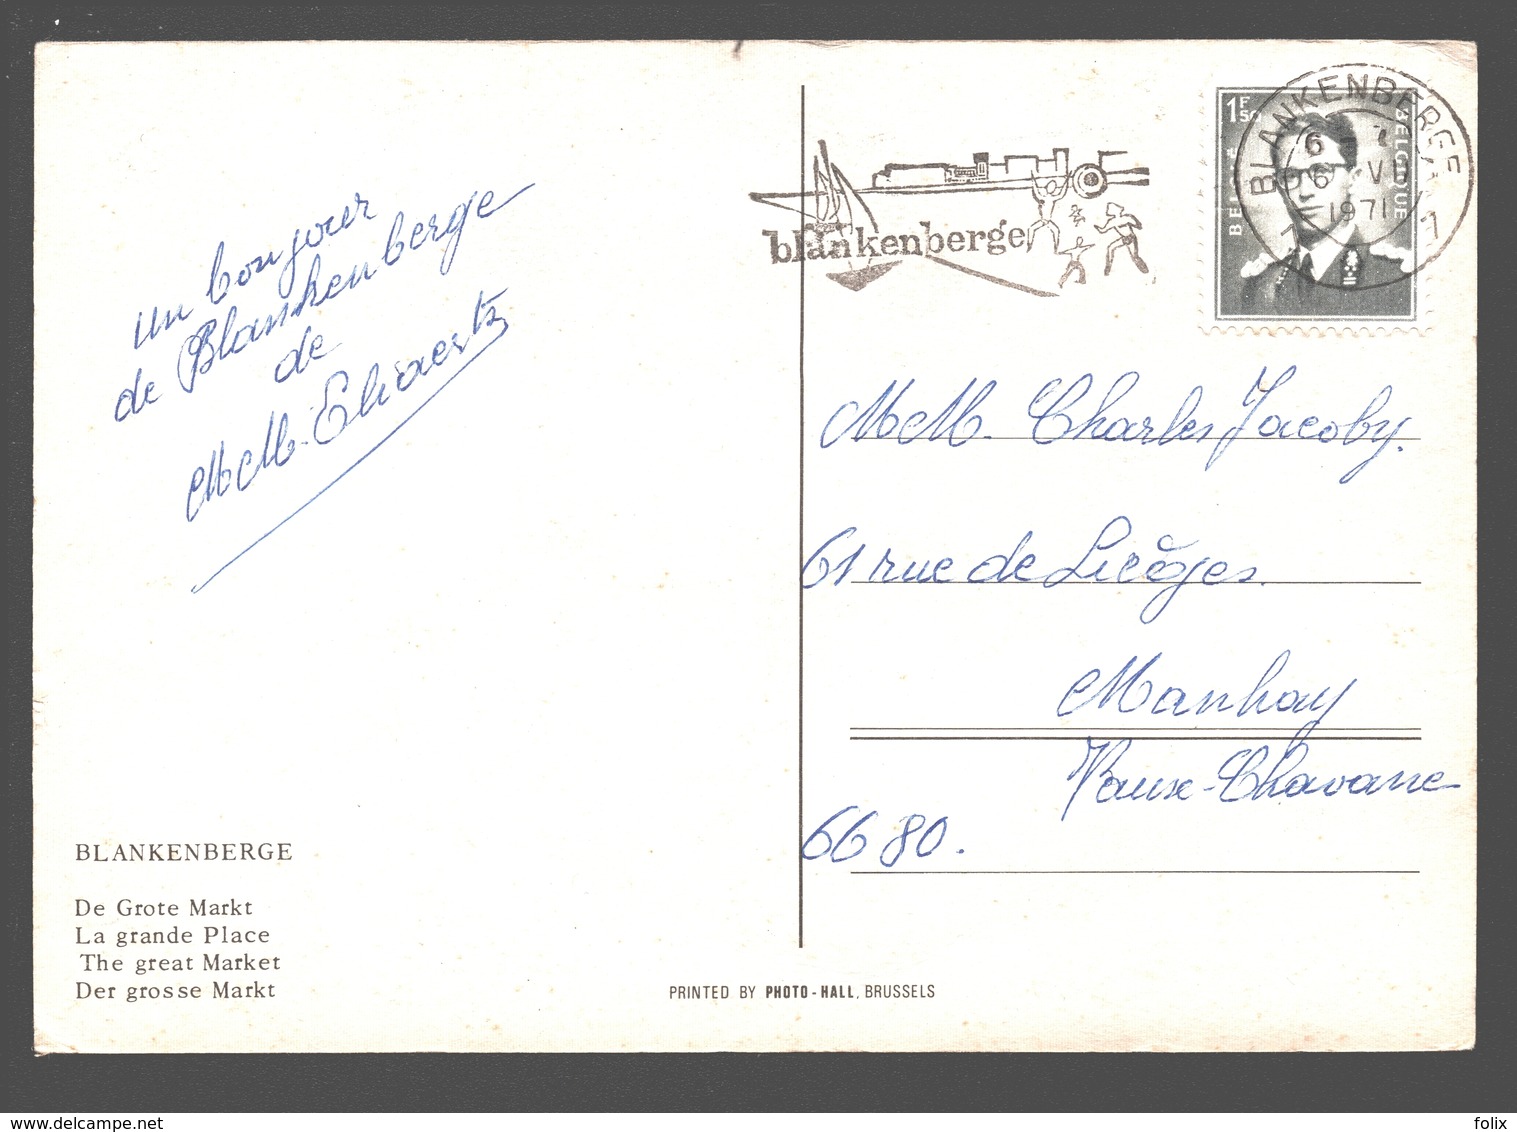 un bonjour
de Blankenberge
de
MM. Eliaerts
BLANKENBERGE
De Grote Markt
La grande Place
The great Market
Der grosse Markt
PRINTED BY PHOTO-HALL, BRUSSELS
blankenberge
1F50
BELGIQUE
BLANKENBERGE
1971
MM. Charles Jacoby.
61 rue de Lièges.
Manhay
Vaux-Chavanne
6680.
www.delcampe.net
folix